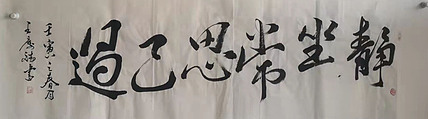 静坐常思己过
壬寅之春月